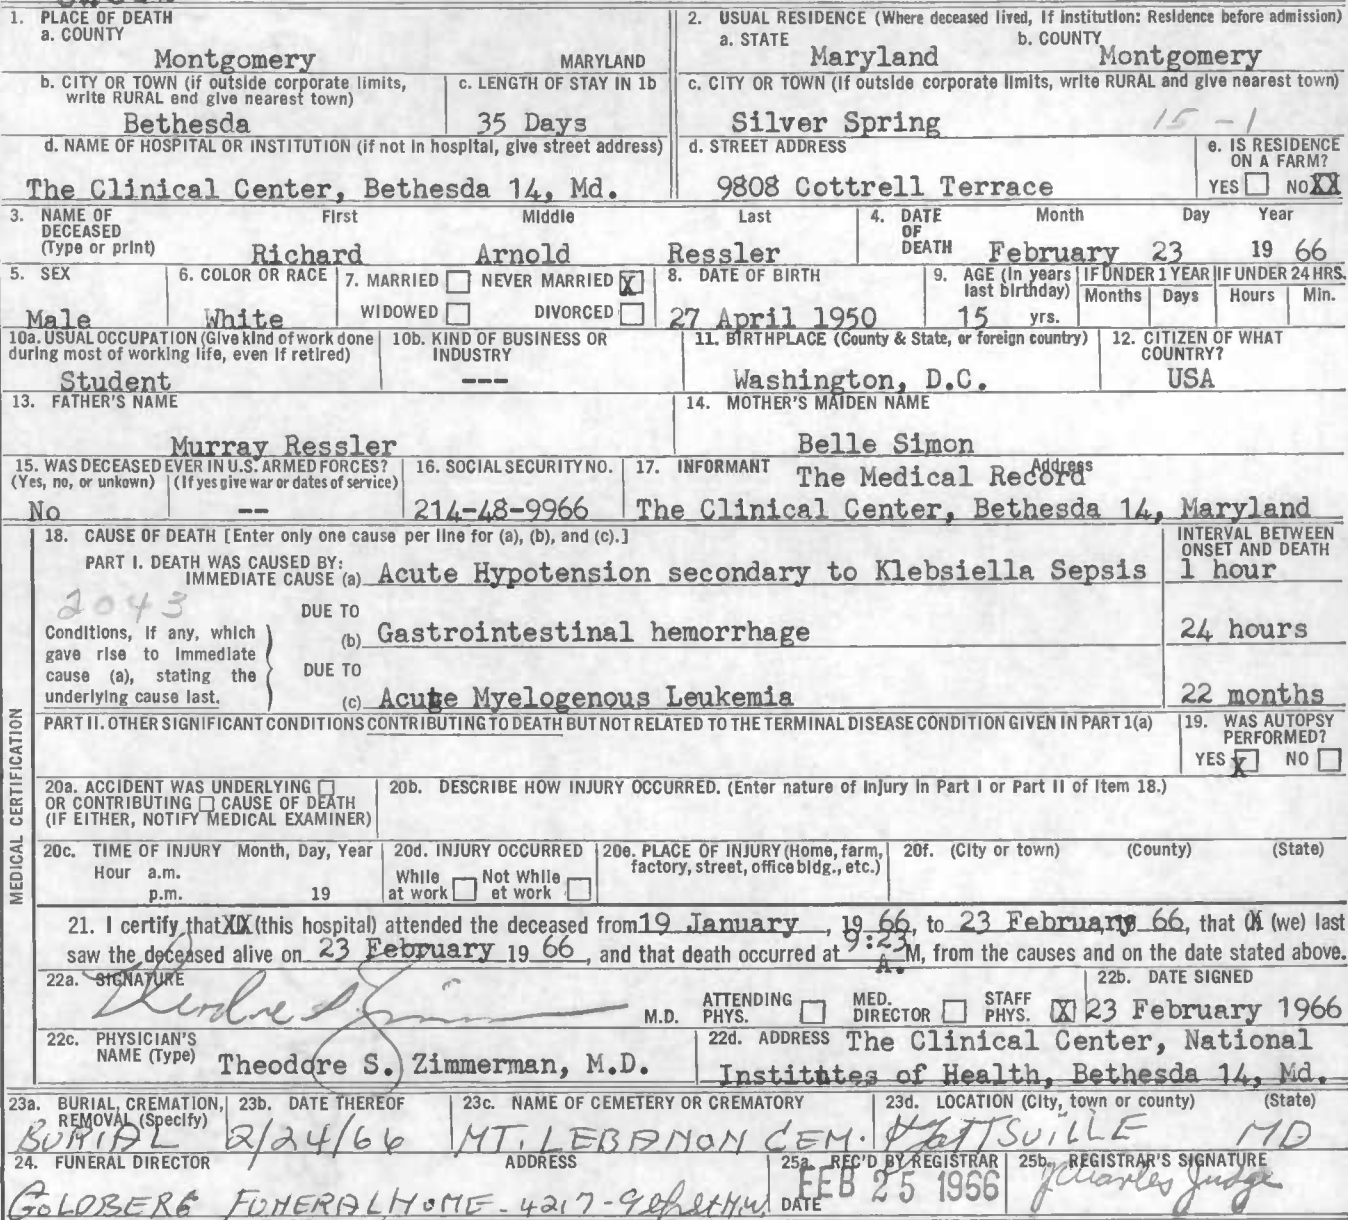 1. PLACE OF DEATH
a. COUNTY
Montgomery MARYLAND
2. USUAL RESIDENCE (Where deceased lived, If institution: Residence before admission)
a. STATE b. COUNTY
Maryland Montgomery
b. CITY OR TOWN (if outside corporate limits, write RURAL end give nearest town)
Bethesda
c. LENGTH OF STAY IN 1b
35 Days
c. CITY OR TOWN (If outside corporate limits, write RURAL and give nearest town)
Silver Spring 15-1
d. NAME OF HOSPITAL OR INSTITUTION (if not in hospital, give street address)
The Clinical Center, Bethesda 14, Md.
d. STREET ADDRESS
9808 Cottrell Terrace
e. IS RESIDENCE ON A FARM?
YES NO XX
3. NAME OF DECEASED (Type or print)
First Middle Last
Richard Arnold Ressler
4. DATE OF DEATH
Month Day Year
February 23 19 66
5. SEX
Male
6. COLOR OR RACE
White
7. MARRIED NEVER MARRIED X
WIDOWED DIVORCED
8. DATE OF BIRTH
27 April 1950
9. AGE (In years last birthday)
15 yrs.
IF UNDER 1 YEAR
Months Days
IF UNDER 24 HRS.
Hours Min.
10a. USUAL OCCUPATION (Give kind of work done during most of working life, even if retired)
Student
10b. KIND OF BUSINESS OR INDUSTRY
---
11. BIRTHPLACE (County & State, or foreign country)
Washington, D.C.
12. CITIZEN OF WHAT COUNTRY?
USA
13. FATHER'S NAME
Murray Ressler
14. MOTHER'S MAIDEN NAME
Belle Simon
15. WAS DECEASED EVER IN U.S. ARMED FORCES?
(Yes, no, or unkown) (If yes give war or dates of service)
No --
16. SOCIAL SECURITY NO.
214-48-9966
17. INFORMANT Address
The Medical Record
The Clinical Center, Bethesda 14, Maryland
MEDICAL CERTIFICATION
18. CAUSE OF DEATH [Enter only one cause per line for (a), (b), and (c).]
INTERVAL BETWEEN ONSET AND DEATH
PART I. DEATH WAS CAUSED BY:
IMMEDIATE CAUSE (a) Acute Hypotension secondary to Klebsiella Sepsis 1 hour
2043
Conditions, if any, which gave rise to immediate cause (a), stating the underlying cause last.
DUE TO
(b) Gastrointestinal hemorrhage 24 hours
DUE TO
(c) Acute Myelogenous Leukemia 22 months
PART II. OTHER SIGNIFICANT CONDITIONS CONTRIBUTING TO DEATH BUT NOT RELATED TO THE TERMINAL DISEASE CONDITION GIVEN IN PART 1(a)
19. WAS AUTOPSY PERFORMED?
YES X NO
20a. ACCIDENT WAS UNDERLYING
OR CONTRIBUTING CAUSE OF DEATH
(IF EITHER, NOTIFY MEDICAL EXAMINER)
20b. DESCRIBE HOW INJURY OCCURRED. (Enter nature of injury in Part I or Part II of Item 18.)
20c. TIME OF INJURY Month, Day, Year
Hour a.m.
p.m. 19
20d. INJURY OCCURRED
While at work Not While et work
20e. PLACE OF INJURY (Home, farm, factory, street, office bldg., etc.)
20f. (City or town) (County) (State)
21. I certify that XIX (this hospital) attended the deceased from 19 January, 19 66, to 23 February 66, that (X (we) last
saw the deceased alive on 23 February 19 66, and that death occurred at 9:23 A. M, from the causes and on the date stated above.
22a. SIGNATURE
M.D.
ATTENDING PHYS. MED. DIRECTOR STAFF PHYS. X
22b. DATE SIGNED
23 February 1966
22c. PHYSICIAN'S NAME (Type)
Theodore S. Zimmerman, M.D.
22d. ADDRESS The Clinical Center, National
Institutes of Health, Bethesda 14, Md.
23a. BURIAL, CREMATION, REMOVAL (Specify)
BURIAL
23b. DATE THEREOF
2/24/66
23c. NAME OF CEMETERY OR CREMATORY
MT. LEBANON CEM.
23d. LOCATION (City, town or county) (State)
HYATTSVILLE MD
24. FUNERAL DIRECTOR ADDRESS
GOLDBERG FUNERAL HOME - 4217 - 9th St NW
25a. REC'D BY REGISTRAR
DATE FEB 25 1966
25b. REGISTRAR'S SIGNATURE
J Charles Judge